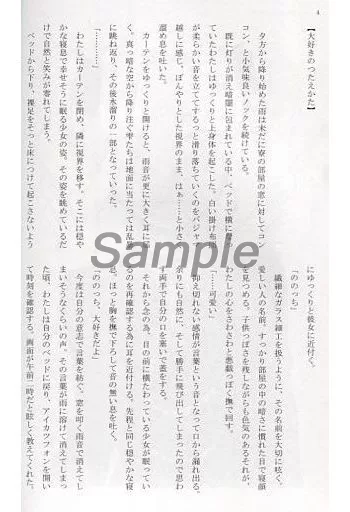 4
【大好きのつたえかた】
夕方から降り始めた雨は未だに寮の部屋の窓に対してコン
コン、と小気味良いノックを続けている。
既に灯りが消え暗闇に包まれている中、ベッドで横に
ていたわたしはゆっくりと上身体を起こした。
が柔らかい音を立ててするっと滑り落ちていくのをパジャマ
越しに感じ、ぼんやりとした視界のまま、はぁ……と小さ
溜め息を吐いた。
カーテンをゆっくりと開けると、雨音が更に大きく耳に
く。真っ暗な空から降り注ぐ雫たちは地面に当たっては乱
に跳ね返り、その後水溜りの一部となっていった。
「…………」
わたしはカーテンを閉め、隣に視界を移す。そこには穏や
かな寝息で幸せそうに眠る少女の姿。その姿を眺めているだ
けで自然と笑みが零れてしまう。
ベッドから下り、裸足をそっと床につけて起こさないよう
にゆっくりと彼女に近付く。
「ののっち」
繊細なガラス細工を扱うように、その名前を大切に呟く。
愛しい人の名前。すっかり部屋の中の暗さに慣れた目で寝顔
を見つめる。子供っぽさを残しながらも色気のあるそれが、
わたしの心をさわさわと悪戯っぽく撫で回す。
「……可愛い」
抑え切れない感情が言葉という音となって口から漏れ出る。
余りにも自然に、そして勝手に飛び出してしまったので思わ
ず両手で自分の口を塞いで蓋をする。
それから念の為、目の前に横たわっている少女が眠ってい
るのを再確認する為に耳を近付ける。先程と同じ穏やかな寝
息。ほっと胸を撫で下ろして音の無い息を吐く。
「ののっち、大好きだよ」
今度は自分の意志で言葉を紡ぐ。窓を叩く雨音で消えてし
まいそうなくらいの声。その言葉が雨に溶けて消えてしまっ
た頃、わたしは自分のベッドに戻り、アイカツフォンを開い
て時刻を確認する。画面が午前二時だと眩しく教えてくれた。
Sample